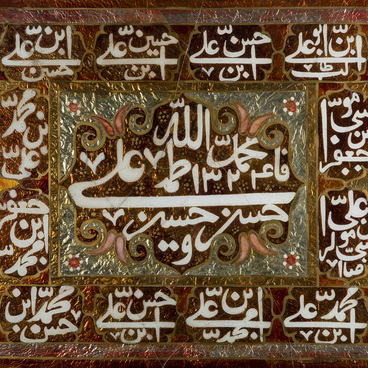 علی ابن ابو طالب
حسن ابن علی
حسین ابن علی
علی ابن حسین
محمد بن علی
جعفر ابن محمد
موسی بن جعفر
علی ابن موسی
محمد ابن علی
علی بن محمد
حسن ابن علی
محمد ابن حسن
الله
محمد
فاطمه علی
۱۳۲۴
حسن و حسین